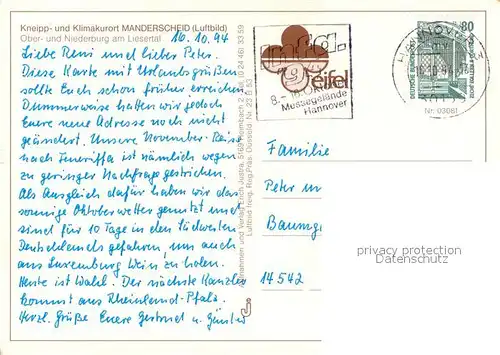 Kneipp- und Klimakurort MANDERSCHEID (Luftbild)
Ober- und Niederburg am Liesertal
16.10.94
Liebe Reni und lieber Peter.
Diese Karte mit Urlaubsgrüßen
sollte Euch schon früher erreichen
Dummerweise hatten wir jedoch
Eure neue Adresse noch nicht
geändert. Unsere November-Reise
nach Teneriffa ist nämlich wegen
zu geringer Nachfrage gestrichen.
Als Ausgleich dafür haben wir das
sonnige Oktoberwetter genutzt und
sind für 10 Tage in den Südwesten
Deutschlands gefahren, um auch
aus Luxemburg Wein zu holen.
Heute ist Wahl. Der nächste Kanzler
kommt aus Rheinland-Pfalz.
Herzl. Grüße Euere Gertrud u. Günter
infa.
Eifel
Messegelände
Hannover
HANNOVER
80
DEUTSCHE BUNDESPOST
Nr. 03061
Familie
Peter
Baumg
14542
privacy protection
Datenschutz